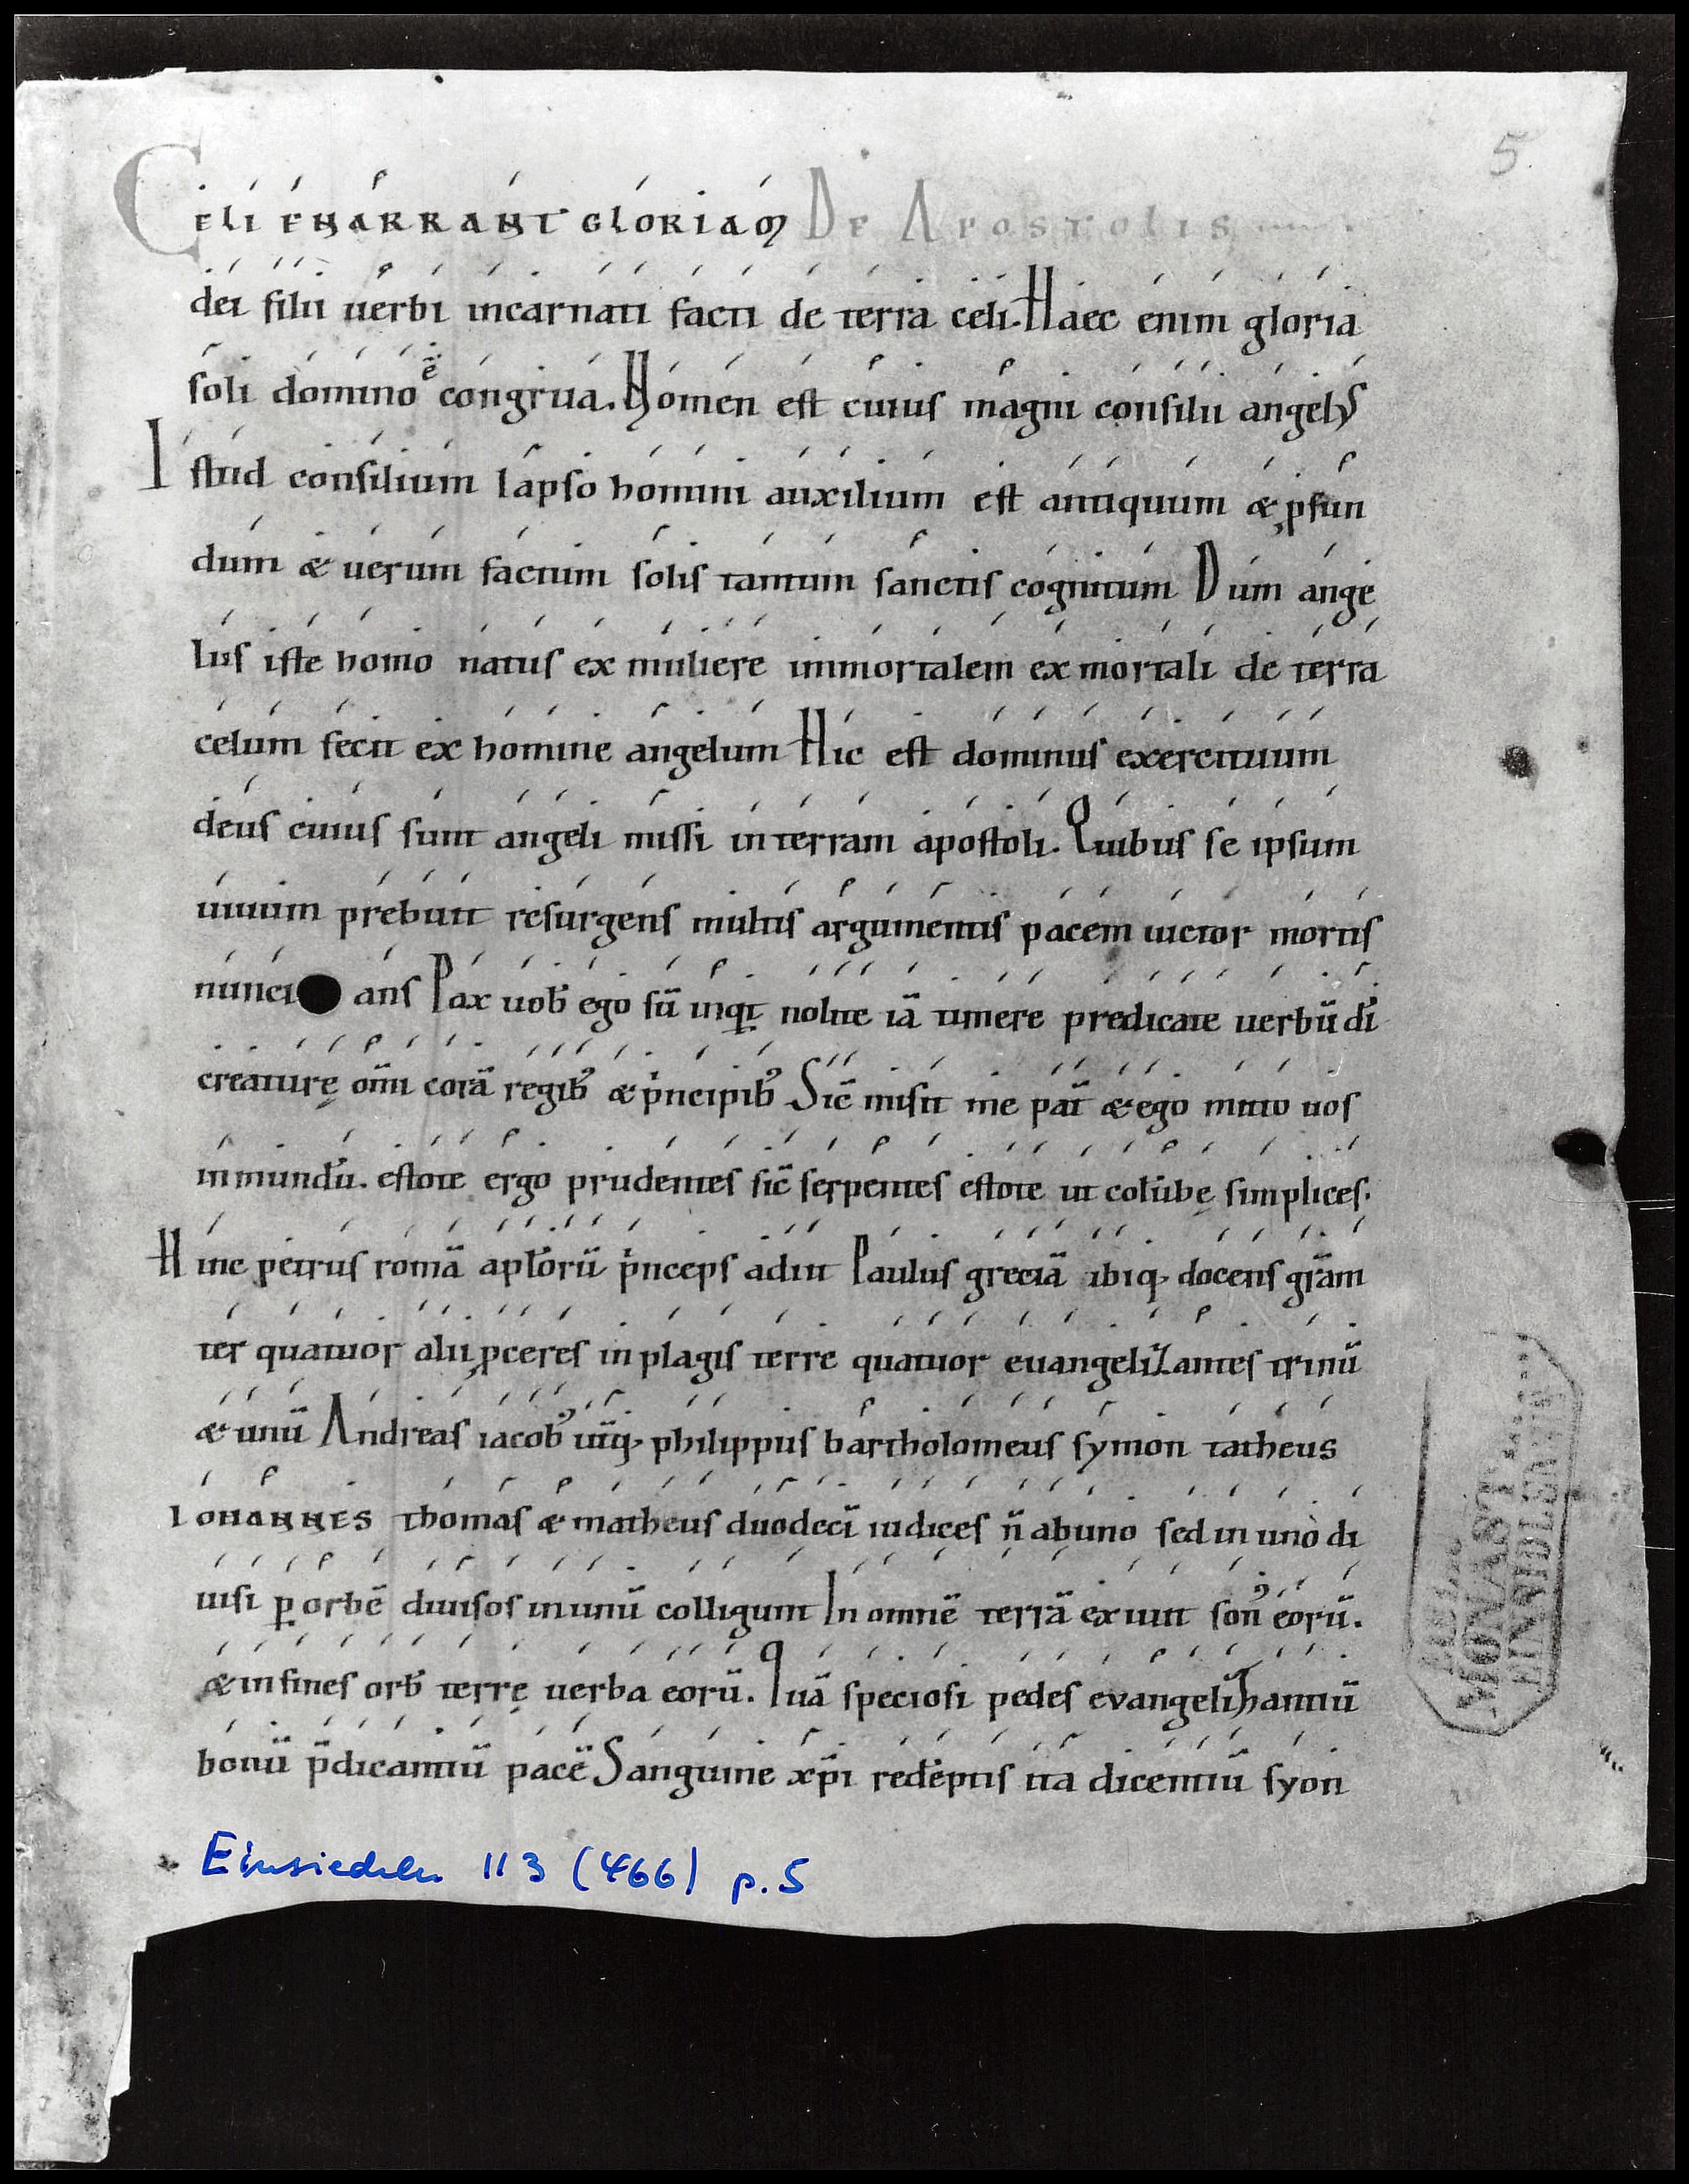 5
CELI ENARRANT GLORIAM DE APOSTOLIS
dei filii uerbi incarnati facti de terra celi. Haec enim gloria
soli domino ē congrua. Nomen est cuius magni consilii angelus
Istud consilium lapso homini auxilium est antiquum & ꝓfun
dum & uerum factum solis tantum sanctis cognitum Dum ange
lus iste homo natus ex muliere immortalem ex mortali de terra
celum fecit ex homine angelum Hic est dominus exercituum
deus cuius sunt angeli missi in terram apostoli. Quibus se ipsum
uiuum prebuit resurgens multis argumentis pacem uictor mortis
nunci ans Pax uob̄ ego sū inqt̄ nolite iā timere predicate uerbū dī
creaturę om̄i corā regib᾿ & p̄ncipib᾿ Sic̄ misit me pat̄ & ego mitto uos
in mundū. estote ergo prudentes sic̄ serpentes estote ut colūbę simplices.
Hinc petrus romā apl̄orū p̄nceps adiit Paulus greciā ibiq; docens gr̄am
ter quatuor alii ꝓceres in plagis terre quatuor euangelizantes trinū
& unū Andreas iacob᾿ ut̄q; philippus bartholomeus symon tatheus
IOHANNES thomas & matheus duodecī iudices n̄ ab uno sed in uno di
uisi ꝑ orbē diuisos in unū colligunt In omnē terrā exiuit son᾿ eorū.
& in fines orb̄ terrę uerba eorū. Quā speciosi pedes evangelizantiū
bonū p̄dicantiū pacē Sanguine xp̄i redēptis ita dicentiū syon
Einsiedeln 113 (466) p. 5